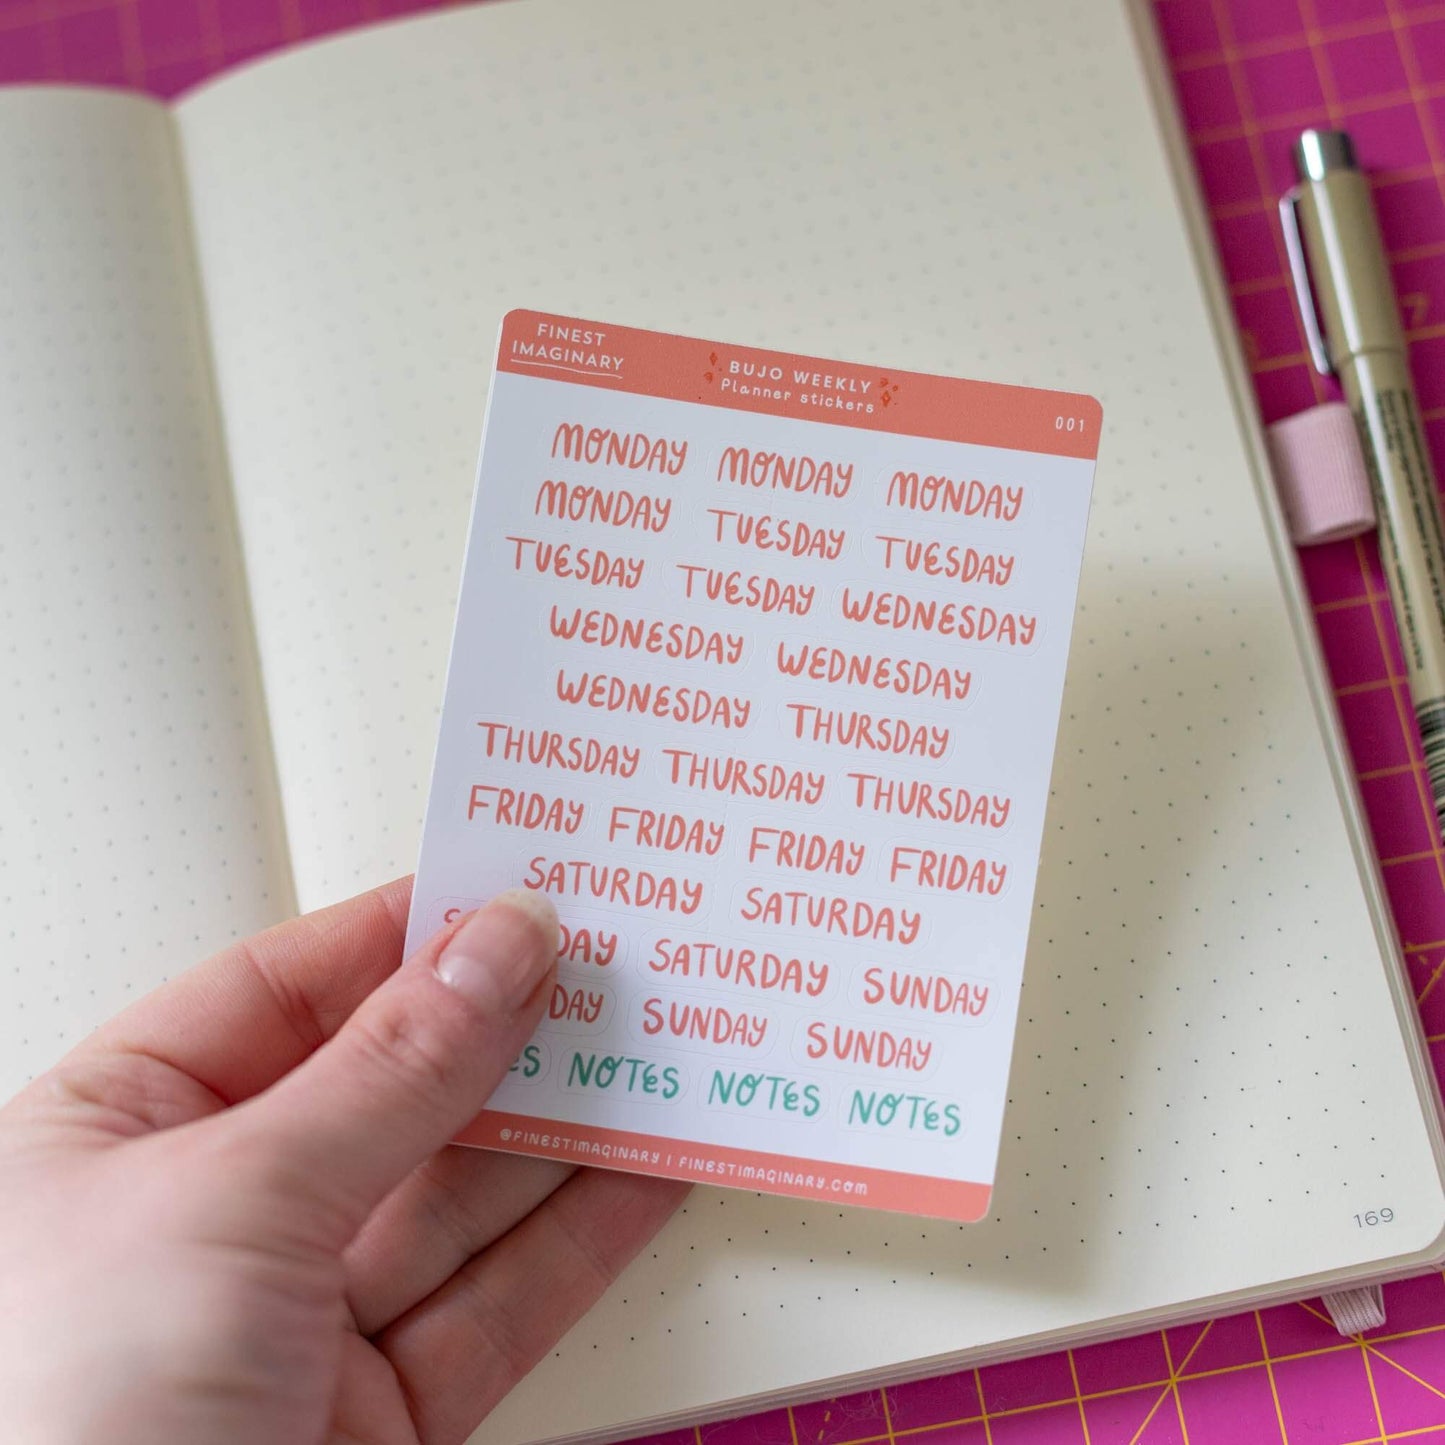 FINEST
IMAGINARY
BUJO WEEKLY
Planner stickers
001
MONDAY MONDAY MONDAY
MONDAY TUESDAY TUESDAY
TUESDAY TUESDAY WEDNESDAY
WEDNESDAY WEDNESDAY
WEDNESDAY THURSDAY
THURSDAY THURSDAY THURSDAY
FRIDAY FRIDAY FRIDAY FRIDAY
SATURDAY SATURDAY
SATURDAY SUNDAY
SUNDAY SUNDAY
NOTES NOTES NOTES
@FINESTIMAGINARY | FINESTIMAGINARY.COM
169